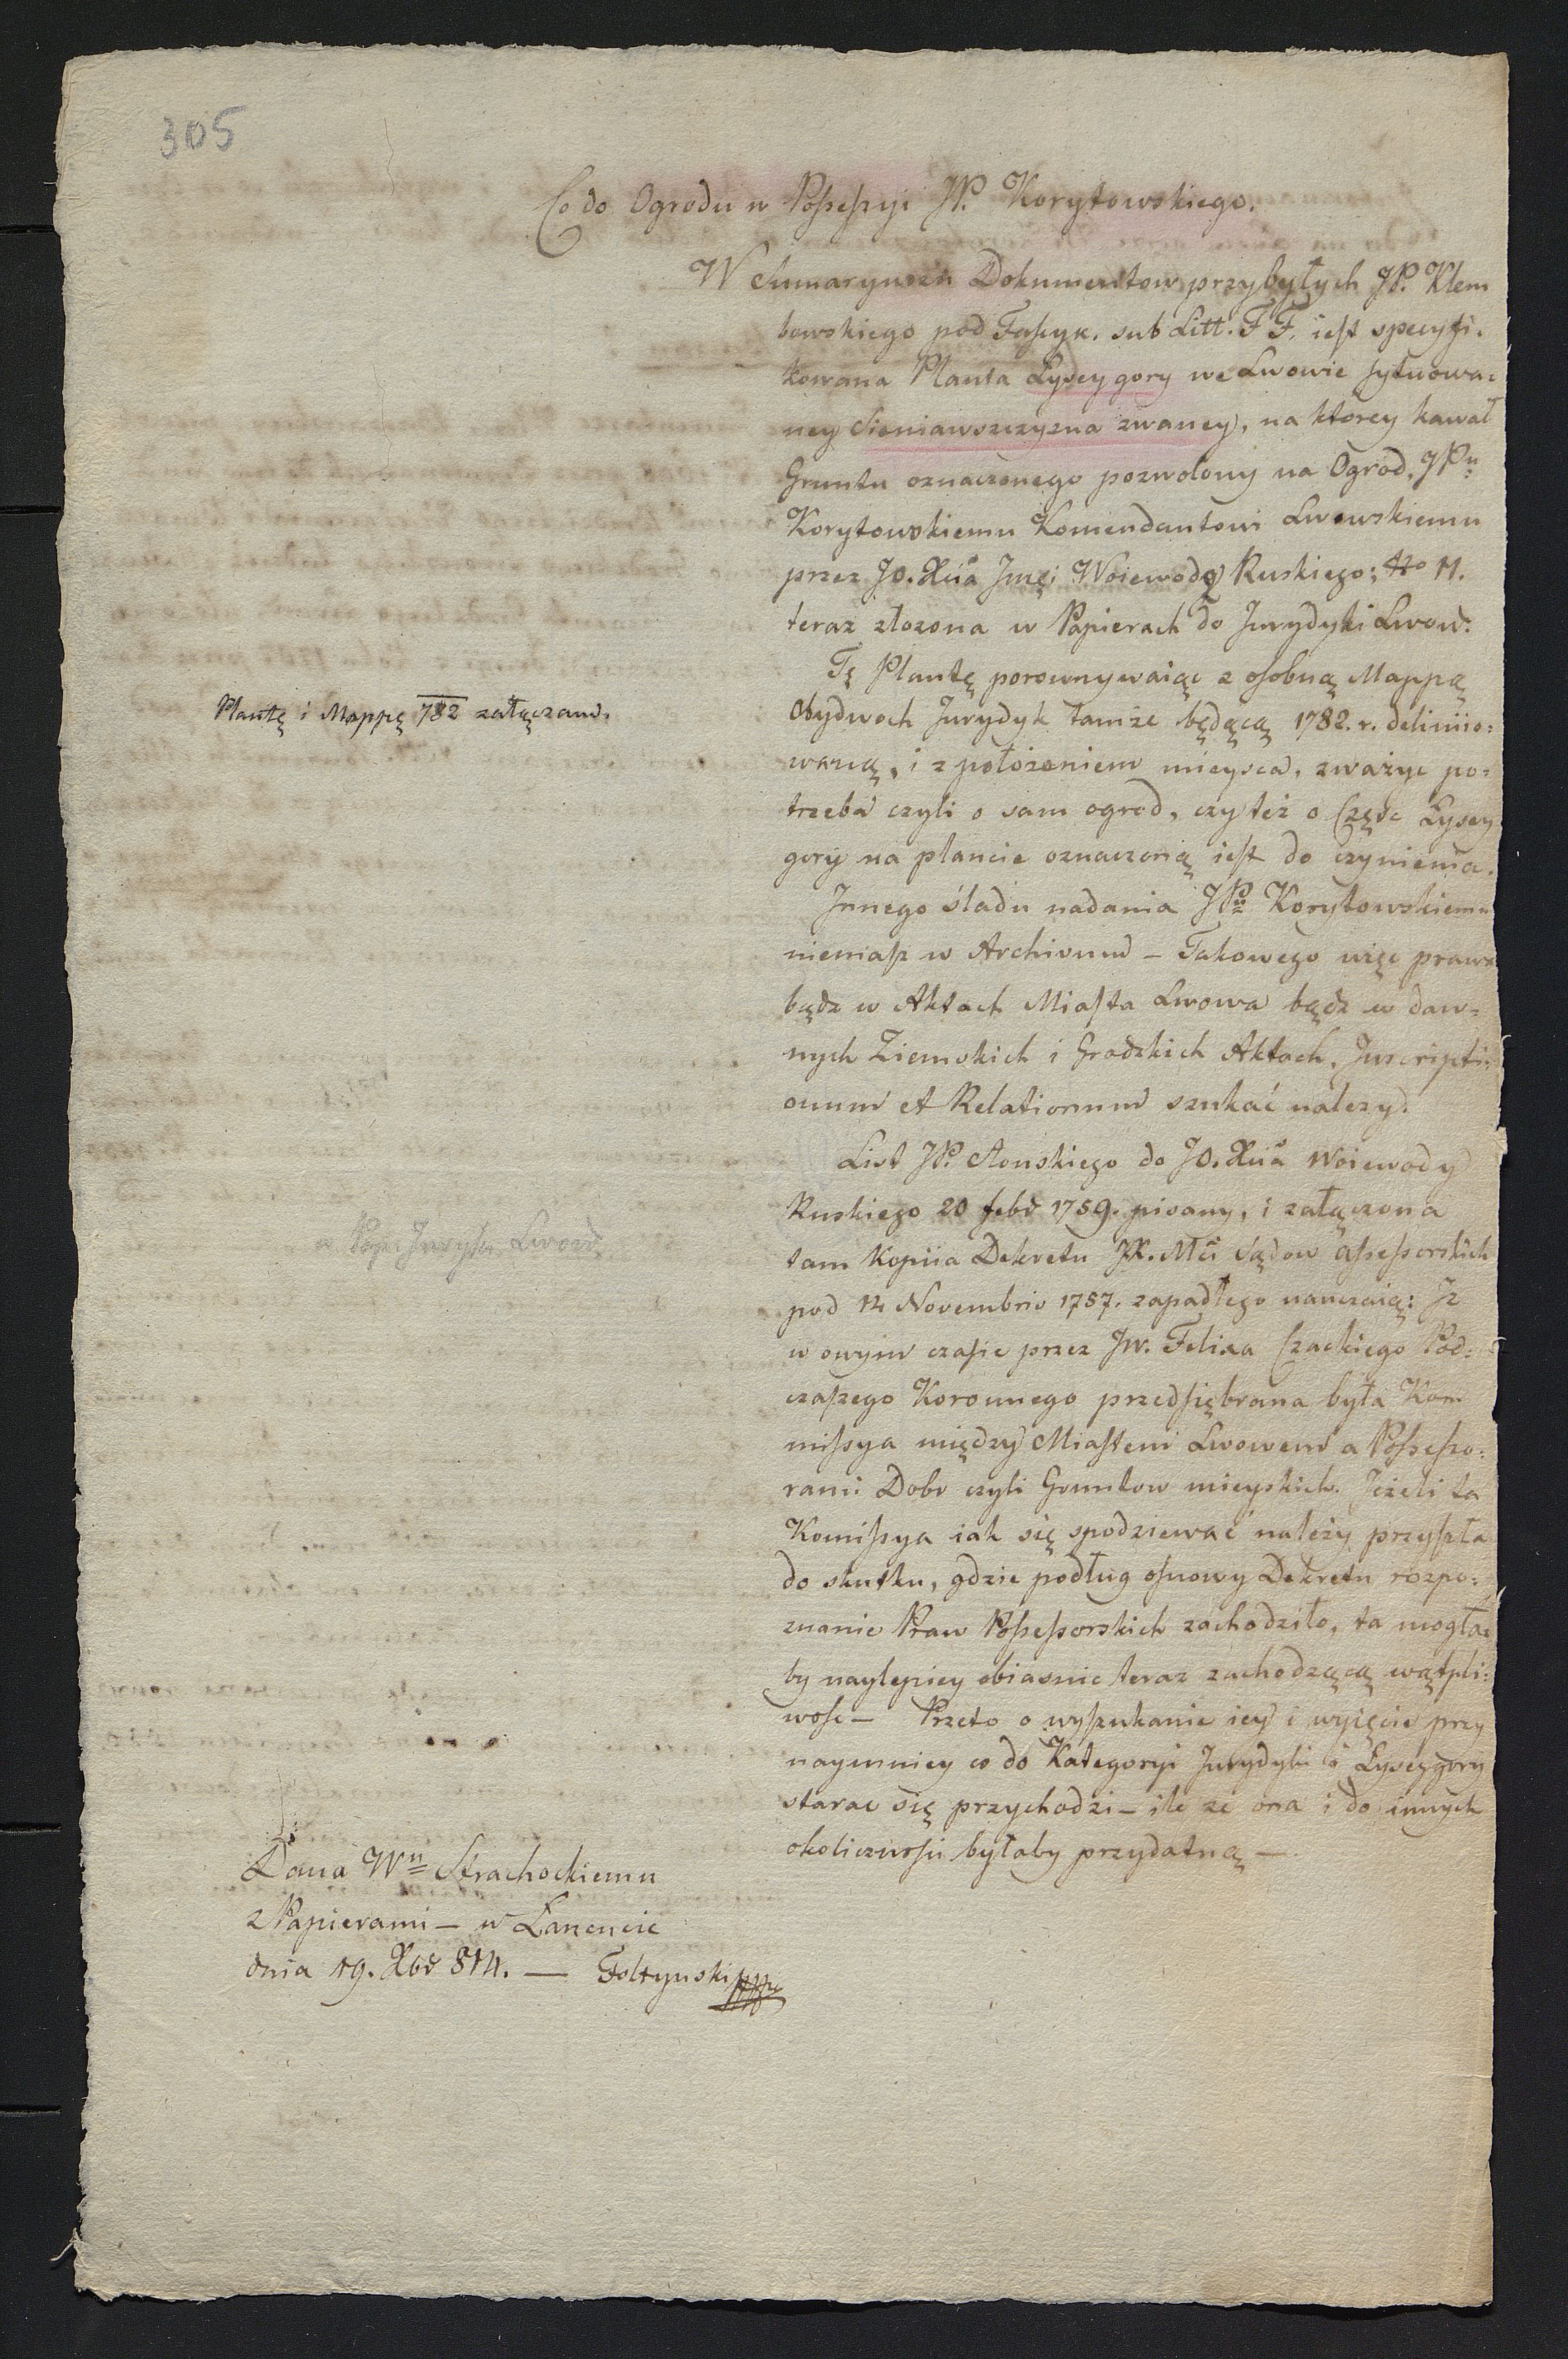 305
Co do Ogrodu w Possessyi JP. Korytowskiego.
W Sumaryuszu Dokumentow przybyłych JP. Klem
bowskiego pod Fascyk. sub Litt. F F, iest specyfi:
kowana Planta Łysey gory we Lwowie sytuowa:
ney Sieniawszczyzna zwaney, na ktorey kawał
Gruntu oznaczonego pozwolony na Ogrod, JPu
Korytowskiemu Komendantowi Lwowskiemu
przez JO. Xcia Jmci Woiewodę Ruskiego; No 11.
teraz złozona w Papierach do Jurydyki Lwow:
Tę Plantę porownywaiąc z osobną Mappą
Obydwoch Jurydyk tamże będącą 1782. r. deliniio:
waną, i z położeniem mieysca, zważyc po:
trzeba czyli o sam ogrod, czy też o Częsc Łysey
gory na plancie oznaczoną iest do czynienia.
Plantę i Mappę 782 załączam.
Innego śladu nadania JPu Korytowskiemu
niemasz w Archivum – Takowego więc prawa
bądz w Aktach Miasta Lwowa bądz w daw:
nych Ziemskich i Grodzkich Aktach, Inscripti:
onum et Relationum szukać nalezy.
List JP. Słonskiego do JO. Xcia Woiewody
Ruskiego 20 febr 1759. pisany, i załączona
tam Kopiia Dekretu JK. Mci Sądow assessorskich
pod 14 Novembris 1757. zapadłego nauczaią: Iz
w owym czasie przez Jw. Felixa Czackiego Pod:
czaszego Koronnego przedsiębrana była Kom
missya między Miastem Lwowem a Possesso:
rami Dobr czyli Gruntow mieyskich. Jeżeli ta
Komissya iak się spodziewać należy przyszła
do skutku, gdzie podług osnowy Dekretu rozpo:
znanie Praw Possessorskich zachodziło, ta mogła:
by naylepiey obiasnic teraz zachodzącą wątpli:
wosc – Przeto o wyszukanie iey i wyięcie przy
naymniey co do Kategoryi Jurydyki i Łyseygory
starac się przychodzi – ile ze ona i do innych
okolicznosci byłaby przydatną –
w Pap. Jurysd. Lwow
Dana Wu Strachockiemu
z Papierami – w Łancucie
dnia 19. Xbr 814. — Foltynski mpp